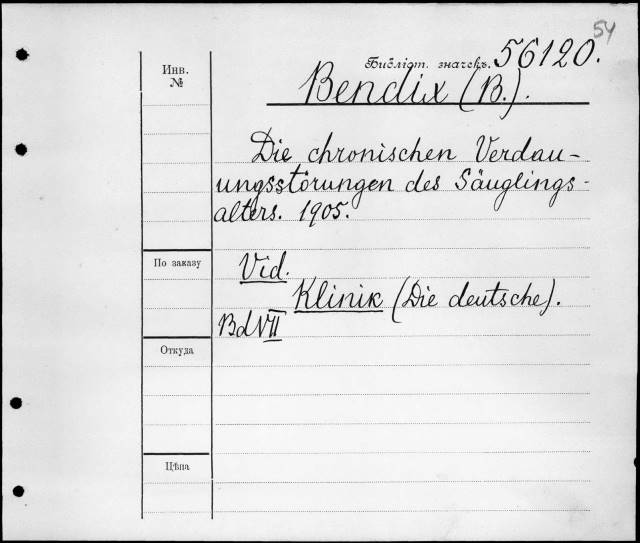 54
Библіот. значекъ. 56120.
Инв.
№
Bendix (B.).
Die chronischen Verdau-
ungsstörungen des Säuglings-
alters. 1905.
По заказу
Vid.
Klinik (Die deutsche).
Bd VII
Откуда
Цѣна